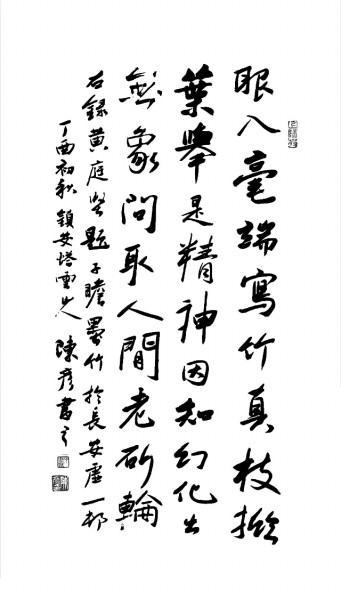 眼入毫端寫竹真枝掀
葉舉是精神因知幻化出
無象問取人間老斫輪
右錄黃庭堅題子瞻墨竹於長安虛一邨
丁酉初秋鎮安塔雲山人陳彥書之